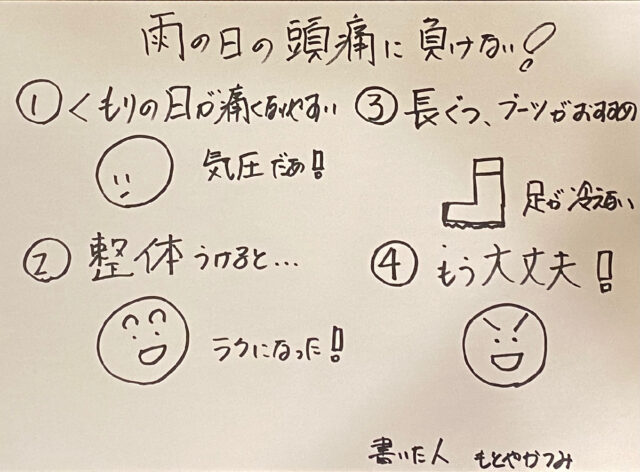 雨の日の頭痛に負けない!
① くもりの日が痛くなりやすい
気圧だぁ!
② 整体うけると…
ラクになった!
③ 長ぐつ、ブーツがおすすめ
足が冷えない
④ もう大丈夫!
書いた人 もとやかつみ